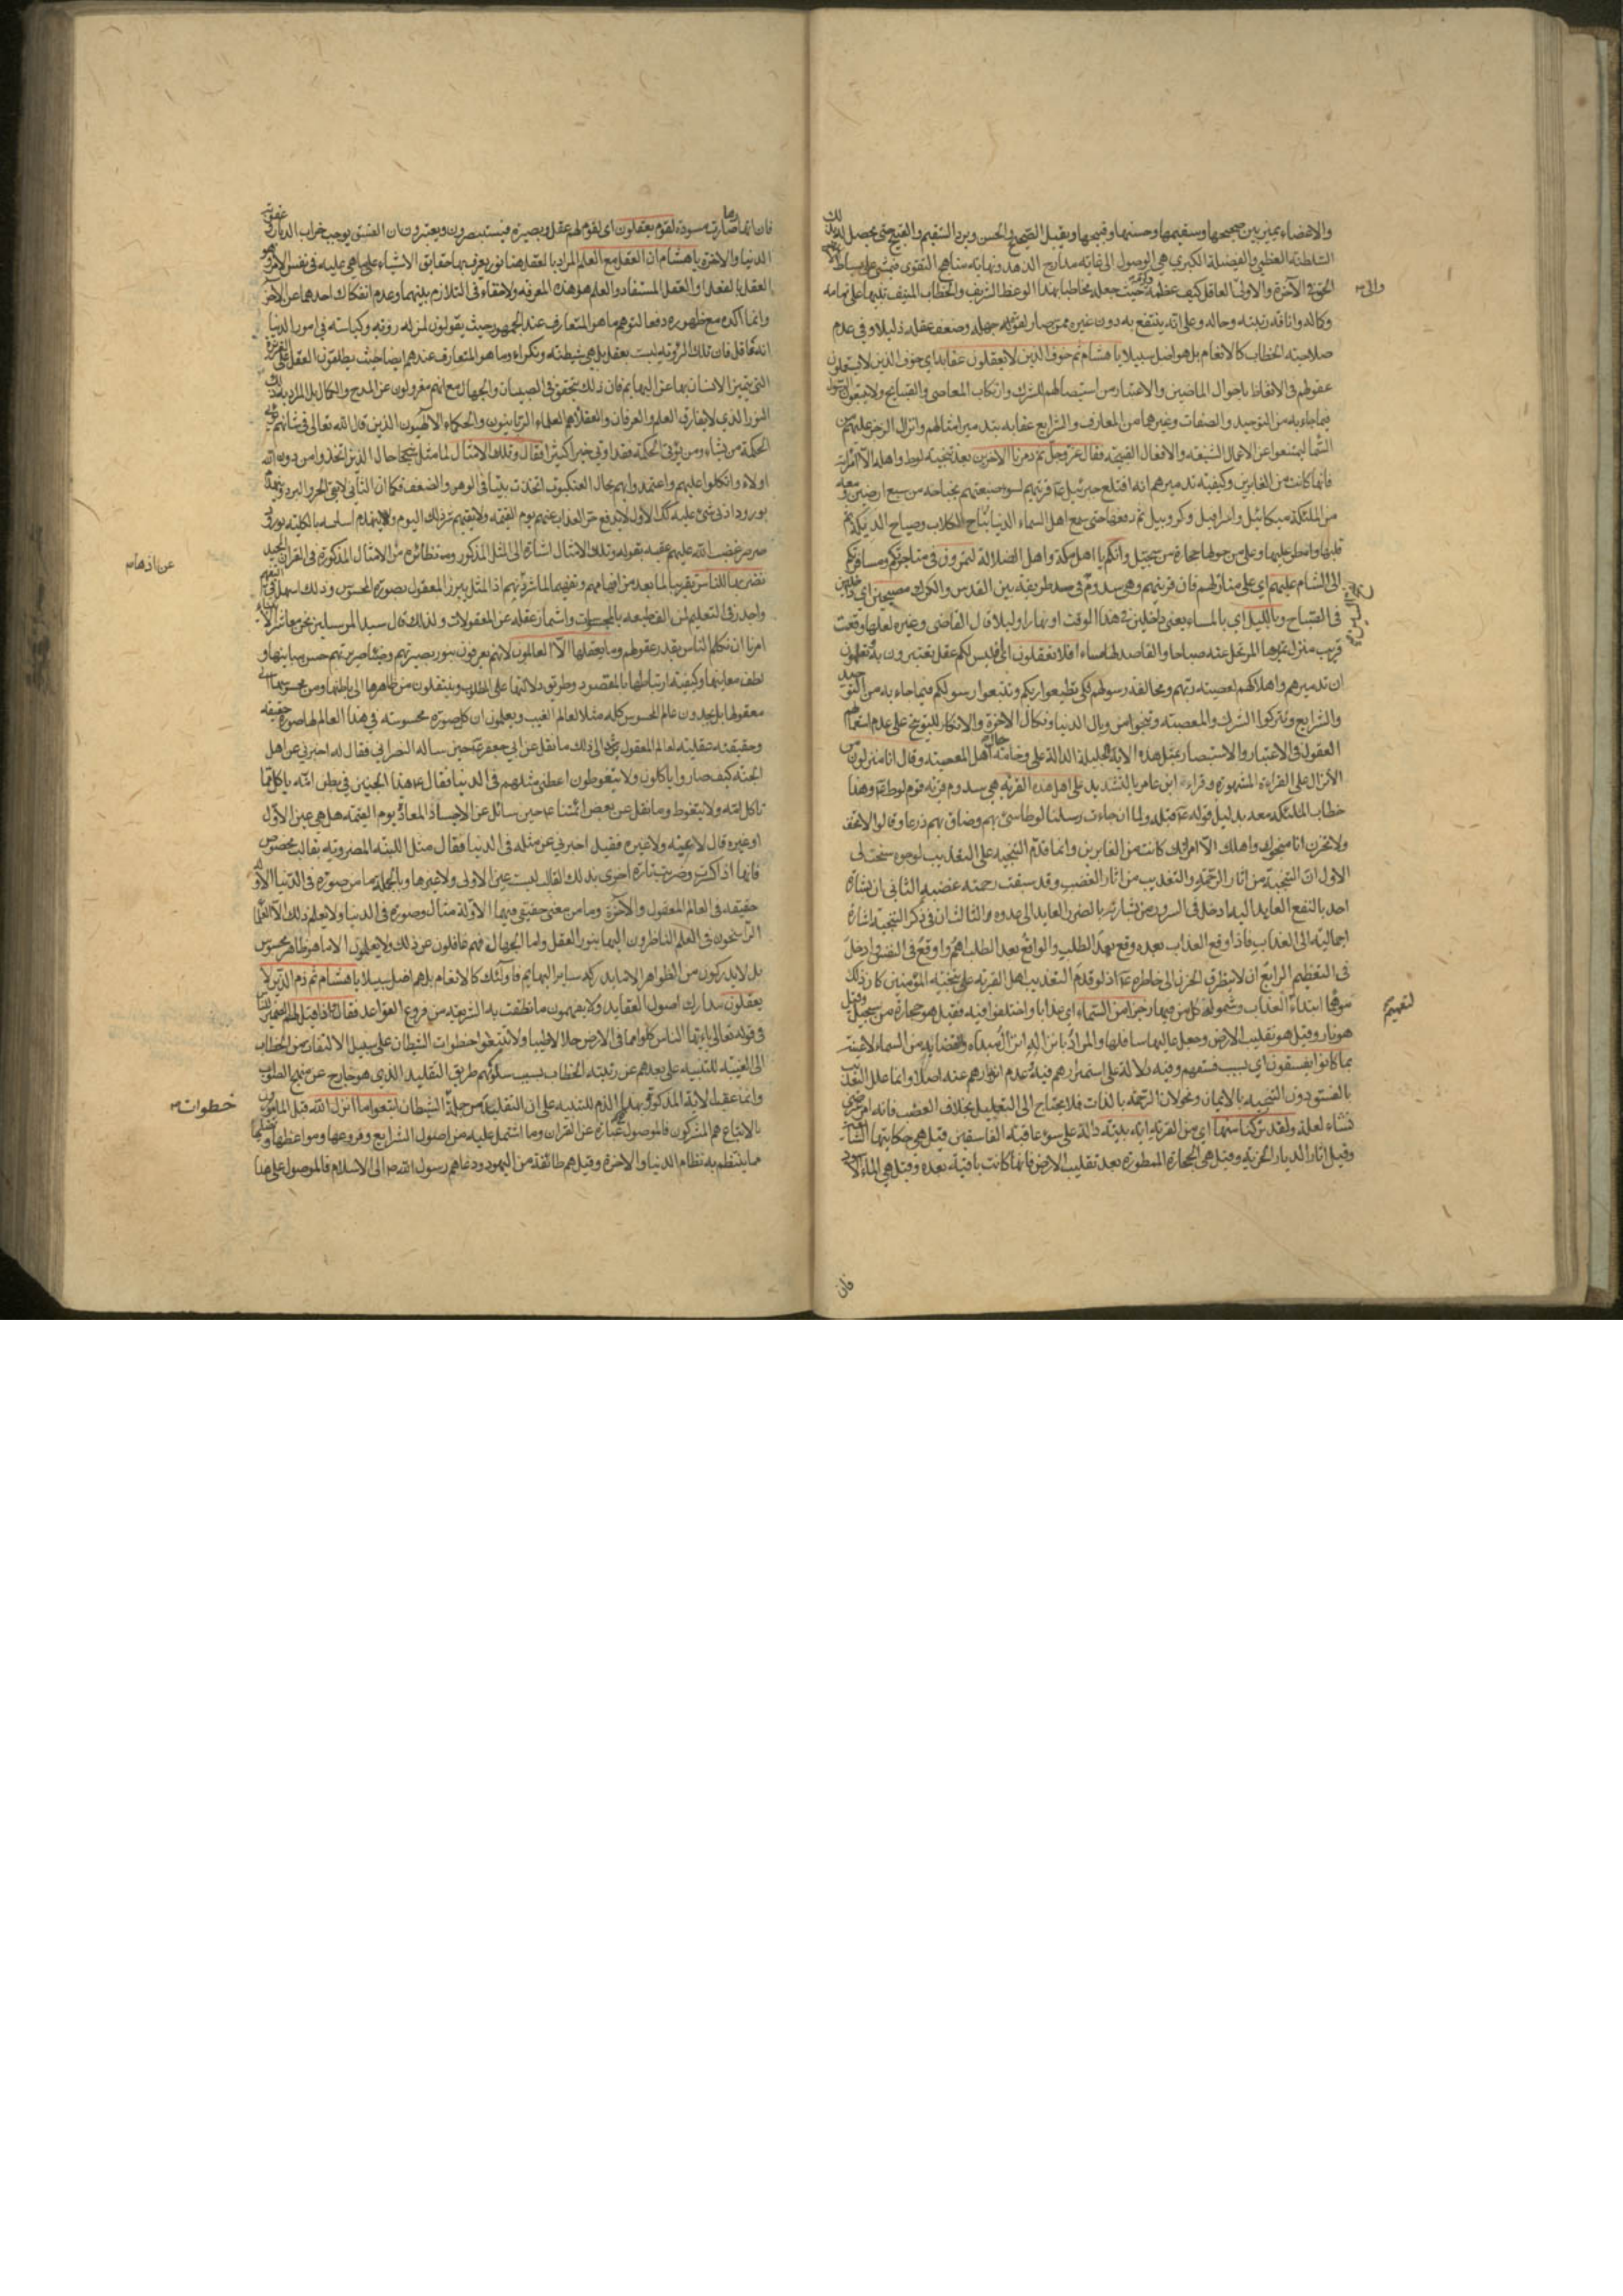 والاعضاء يميز بين صحيحها وسقيمها وحسنها وقبيحها ويقبل الصحيح والحسن ويرد السقيم والقبيح حتى يحصل له بذلك
السلطنة العظمى والفضيلة الكبرى هي الوصول الى غاية مدارج الزهد ونهاية مناهج التقوى فيمشي على بساط
الحق في الآخرة والاولى العاقل كيف عظمه حيث جعله مخاطبا بهذا الوعظ الشريف والخطاب المنيف تنبيها على تمامه
والى
وكماله واناقة رتبته وحاله وعلى انه ينتفع به دون غيره ممن صار لقوة جهله وضعف عقله ذليلا وفي عدم
صلاحيته الخطاب كالانعام بل هو اضل سبيلا يا هشام ثم خوف الذين لا يعقلون عقابه اي خوف الذين لا يستعملون
عقولهم في الاتعاظ باحوال الماضين والاعتبار من استيصالهم للشرك وارتكاب المعاصي والقبايح ولا يتبعون الرسول
فيما جاء به من التوحيد والصفات وغيرهما من المعارف والشرايع عقابه بتدمير امثالهم وانزال الرجز عليهم من
السماء ليمتنعوا عن الاعمال الشنيعة والافعال القبيحة فقال عز وجل ثم دمرنا الاخرين بعد تنجية لوط واهله الا امرأته
فانها كانت من الغابرين وكيفية تدميرهم انه اقتلع جبرئيل ع قريتهم لسوء صنيعتهم بجناحه من سبع ارضين ومعه
من الملئكة ميكائيل واسرافيل وكروبيل ثم رفعها حتى سمع اهل السماء الدنيا نباح الكلاب وصياح الديكة ثم
قلبها وامطر عليها وعلى من حولها حجارة من سجيل وانكم يا اهل مكة واهل الضلالة لتمرون في متاجركم ومسافرتكم
الى الشام عليهم اي على منازلهم فان قريتهم وهي سدوم في سد طريقه بين القدس والكرك مصبحين اي داخلين
في الصباح وبالليل اي بالمساء يعني داخلين في هذا الوقت او نهارا وليلا قال القاضي وغيره لعلها وقعت
قريب منزل يمر بها المرتحل عنه صباحا والقاصد لها مساء افلا تعقلون اي أفليس لكم عقل تعتبرون به وتعلمون
ان تدميرهم واهلاكهم لمعصية ربهم ومخالفة رسولهم لكي تطيعوا ربكم وتتبعوا رسولكم فيما جاء به من التوحيد
والشرايع وتتركوا الشرك والمعصية وتنجوا من وبال الدنيا ونكال الاخرة والانكار للتوبيخ على عدم استعمالهم
العقول في الاعتبار والاستبصار بمثل هذه الاية الجليلة الدالة على وخامة حال اهل المعصية وقال انا منزلون
الانزال على القراءة المشهورة وقراءة ابن عامر بالتشديد على اهل هذه القرية هي سدوم قرية قوم لوط ع وهذا
خطاب الملئكة معه بدليل قوله ع قبله ولما ان جاءت رسلنا لوطا سيء بهم وضاق بهم ذرعا وقالوا لا تخف
ولا تحزن انا منجوك واهلك الا امرأتك كانت من الغابرين وانما قدم التنجية على التعذيب لوجوه سنحت لي
الاول ان التنجية من اثار الرحمة والتعذيب من اثار الغضب وقد سبقت رحمته غضبه الثاني ان بشارة
احد بالنفع العايد اليه ادخل في السرور من بشارته بالضرر العايد الى عدوه الثالث ان في ذكر التنجية اشارة
اجمالية الى العذاب فاذا وقع العذاب بعده وقع بعد الطلب والواقع بعد الطلب اهم واوقع في النفس وادخل
في التعظيم الرابع ان لا يتطرق الحزن الى خاطره ع اذ لو قدم التعذيب اهل القرية على تنجية المؤمنين كان ذلك
موهما ابتداء العذاب وشموله لكل من فيها رجزا من السماء اي عذابا واختلفوا فيه فقيل هو حجارة من سجيل وقيل
لتعميم
هو نار وقيل هو تقليب الارض وجعل عاليها سافلها والمراد بانزاله انزال مبداه والقضاء به من السماء
بما كانوا يفسقون اي بسبب فسقهم وفيه دلالة على استمرارهم فيه وعدم انزجارهم عنه اصلا وانما علل التعذيب
بالفسق دون التنجية بالايمان ونحوه لان الرحمة بالذات فلا يحتاج الى التعليل بخلاف الغضب فانه امر عرضي
نشاء لعلة ولقد تركنا منها اي من القرية اية بينة دالة على سوء عاقبة الفاسقين قيل هي حكايتها الشايعة
وقيل اثار الديار الخربة وقيل هي الحجارة الممطورة بعد تقليب الارض فانها كانت باقية بعده وقيل هي الماء الاسود
فان
فان انهارها صارت مسودة لقوم يعقلون اي لقوم لهم عقل وبصيرة فيستبصرون ويعتبرون ان الفسق يوجب خراب الديار وعقوبة
الدنيا والاخرة يا هشام ان العقل مع العلم المراد بالعقل هنا نور يعرف بها حقايق الاشياء على ما هي عليه في نفس الامر وهو
العقل بالفعل او العقل المستفاد والعلم هو هذه المعرفة ولا خفاء في التلازم بينهما وعدم انفكاك احدهما عن الاخر
وانما اكده مع ظهوره دفعا لتوهم ما هو المتعارف عند الجمهور حيث يقولون لمن له روية وكياسة في امور الدنيا
انه عاقل فان تلك الروية ليست بعقل بل هي شيطنة ونكراء وما هو المتعارف عندهم ايضا حيث يطلقون العقل على الغريزة
التي يتميز الانسان بها عن البهايم فان ذلك يتحقق في الصبيان والجهال مع انهم معزولون عن المدح والكمال بل المراد به ذلك
النور الذي لا يفارق العلم والعرفان والعقلاء هم العلماء الربانيون والحكماء الالهيون الذين قال الله تعالى في شانهم يؤتي
الحكمة من يشاء ومن يؤتى الحكمة فقد اوتي خيرا كثيرا فقال وتلك الامثال لما مثل شيخا حال الذين اتخذوا من دون الله
اولياء واتكلوا عليهم واعتمدوا بهم بحال العنكبوت اتخذت بيتا في الوهن والضعف فكما ان الثاني لا يقي الحر والبرد وينهدم
بورود ادنى شيء عليه كك الاول لا يدفع حر العذاب عنهم يوم القيمة ولا يقيهم شر ذلك اليوم وينهدم اساسه بالكلية بورود
صرصر غضب الله عليهم عقبه بقوله وتلك الامثال اشارة الى المثل المذكور ومن نظائره من الامثال المذكورة في القران المجيد
نضربها للناس تقريبا لما بعد من افهامهم وتفهيما لما شذ اذ المثل يبرز المعقول بصورة المحسوس وذلك اسهل في التفهيم
عن اذهانهم
واجدر في التعليم لمن الف طبعه بالمحسوسات واشمأز عقله عن المعقولات ولذلك قال سيد المرسلين نحن معاشر الانبياء
امرنا ان نكلم الناس بقدر عقولهم وما يعقلها الا العالمون لانهم يعرفون بنور بصيرتهم وضياء سريرتهم حسن مبانيها و
لطف معانيها وكيفية ارتباطها بالمقصود وطريق دلالتها على المطلوب وينتقلون من ظاهرها الى باطنها ومن محسوسها الى
معقولها بل يجدون عالم المحسوس كله مثلا لعالم الغيب ويعلمون ان كل صورة محسوسة في هذا العالم لها صورة حقيقة
وحقيقة عقلية لعالم المعقول يرشد الى ذلك ما نقل عن ابي جعفر ع حين ساله النصراني فقال له اخبرني عن اهل
الجنة كيف صاروا ياكلون ولا يتغوطون اعطني مثلهم في الدنيا فقال ع هذا الجنين في بطن امه ياكل مما
تاكل امه ولا يتغوط وما نقل عن بعض ائمتنا ع حين سائل عن الاجساد المعاد يوم القيمة هل هي عين الاول
او غيره قال لا عينه ولا غيره فقيل اخبرني عن مثله في الدنيا فقال مثل اللبنة المضروبة بقالب مخصوص
فانها اذا كسرت وضربت تارة اخرى بذلك القالب ليست عين الاولى ولا غيرها وبالجملة ما من صورة في الدنيا الا وله
حقيقة في العالم المعقول والآخرة وما من معنى حقيقي فيهما الا وله مثال وصورة في الدنيا ولا يعلم ذلك الا العلماء
الراسخون في العلم الناظرون اليها بنور العقل واما الجهال فهم غافلون عن ذلك ولا يعلمون الا ما هو ظاهر محسوس
بل لا يدركون من الظواهر الا ما يدركه ساير البهايم فاولئك كالانعام بل هم اضل سبيلا يا هشام ثم ذم الذين لا
يعقلون مدارك اصول العقايد ولا يفهمون ما نطقت به الشريعة من فروع القواعد فقال واذا قيل لهم الضمير للناس
في قوله تعالى يا ايها الناس كلوا مما في الارض حلالا طيبا ولا تتبعوا خطوات الشيطان على سبيل الالتفات من الخطاب
الى الغيبة للتنبيه على بعدهم عن رتبة الخطاب بسبب سلوكهم طريق التقليد الذي هو خارج عن منهج الصواب
وانما عقب الاية المذكورة بهذا الذم للتنبيه على ان التقليد من جملة الشيطان اتبعوا ما انزل الله قيل المامورون
خطوات
بالاتباع هم المشركون فالموصول عبارة عن القران وما اشتمل عليه من اصول الشرايع وفروعها ومواعظها و
ما ينتظم به نظام الدنيا والاخرة وقيل هم طائفة من اليهود دعاهم رسول الله ص الى الاسلام فالموصول على هذا